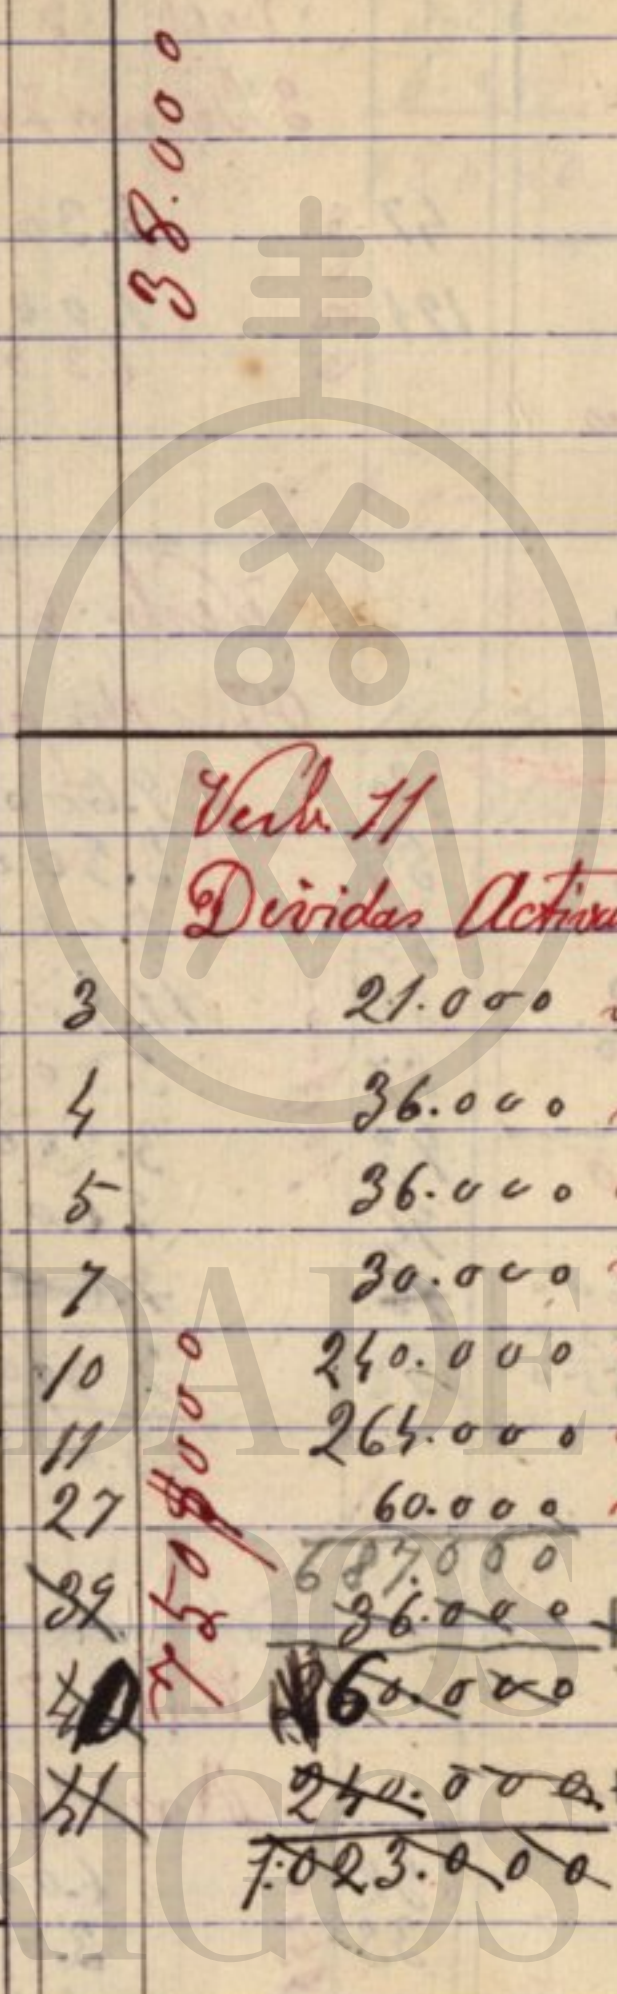 38.000
Verb. 11
Dividas Activa
3 21.000
4 36.000
5 36.000
7 30.000
10 240.000
11 264.000
27 60.000
687.000
39 36.000
40 60.000
41 240.000
1:023.000
750$000
DADE
DOS
RIGOS